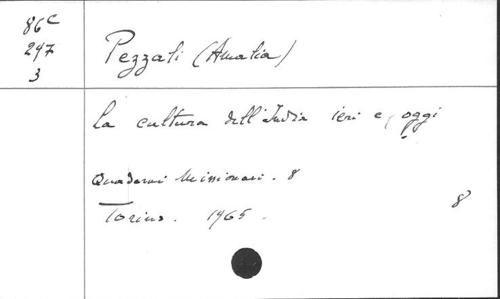 86C
247
3
Pezzali (Amalia)
La cultura dell'India ieri e oggi
Quaderni Missionari. 8
Torino. 1965.
8